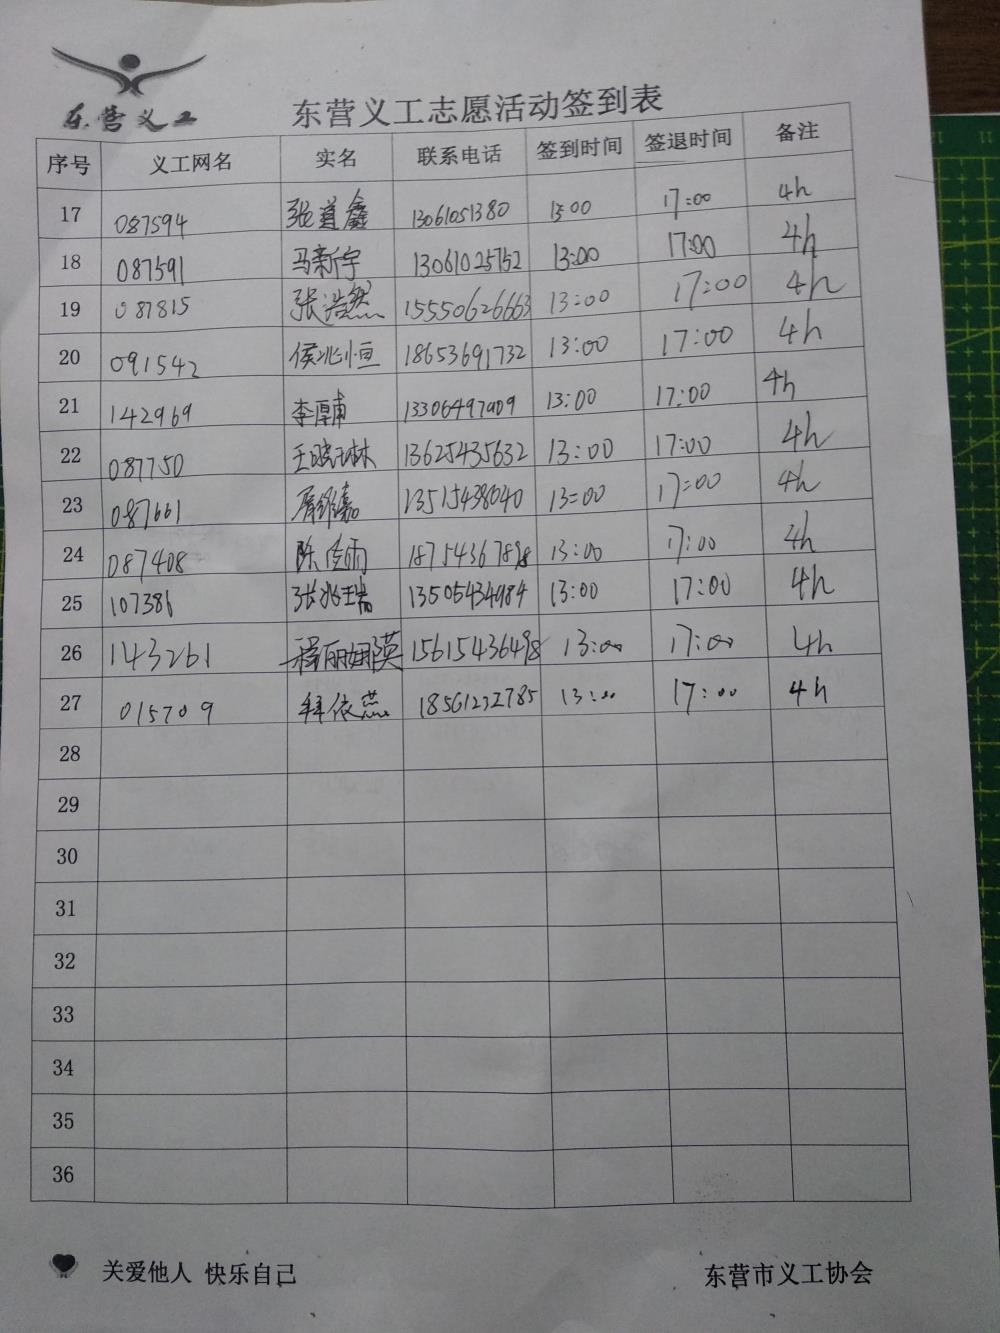 东营义工
东营义工志愿活动签到表
序号 义工网名 实名 联系电话 签到时间 签退时间 备注
17 087594 张道鑫 13061051380 13:00 17:00 4h
18 087591 马新宇 13061025752 13:00 17:00 4h
19 087815 张浩然 15550626663 13:00 17:00 4h
20 091542 侯兆恒 18653691732 13:00 17:00 4h
21 142969 李厚甫 13:00 17:00 4h
22 087750 王晓琳 13625435632 13:00 17:00 4h
23 087661 13515438040 13:00 17:00 4h
24 087408 陈俊雨 13:00 17:00 4h
25 107386 张兆瑞 13505434984 13:00 17:00 4h
26 143261 15615436498 13:00 17:00 4h
27 015709 拜依燕 18561232785 13:00 17:00 4h
28
29
30
31
32
33
34
35
36
关爱他人 快乐自己 东营市义工协会